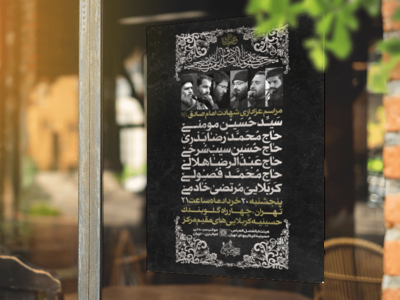 مراسم عزاداری شهادت امام صادق
سید حسین مومنی
حاج محمدرضا بذری
حاج حسین سیب سرخی
حاج عبدالرضا هلالی
حاج محمد فصولی
کربلایی مرتضی خادمی
پنجشنبه ۲۰ خرداد ماه ساعت ۲۱
تهران، چهارراه گلوبندک
حسینیه کربلایی‌های مقیم مرکز